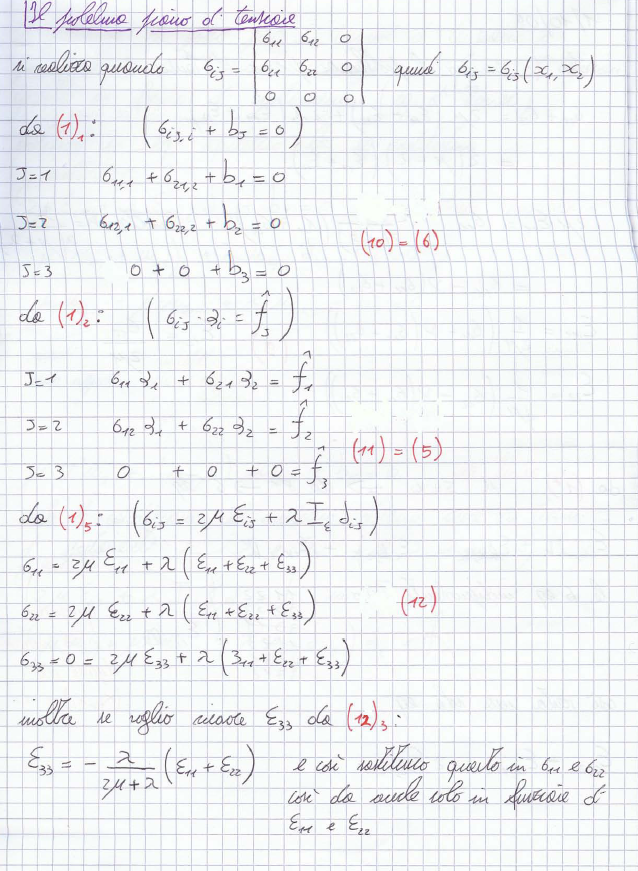 Il problema piano di tensione
si realizza quando σij = | σ11 σ12 0 | σ21 σ22 0 | 0 0 0 | quindi σij = σij(x1, x2)
da (1)1: (σij,i + bJ = 0)
J=1 σ11,1 + σ21,2 + b1 = 0
J=2 σ12,1 + σ22,2 + b2 = 0
(10) = (6)
J=3 0 + 0 + b3 = 0
da (1)2: (σij · αi = f̂J)
J=1 σ11 α1 + σ21 α2 = f̂1
J=2 σ12 α1 + σ22 α2 = f̂2
(11) = (5)
J=3 0 + 0 + 0 = f̂3
da (1)5: (σij = 2μ εij + λ Iε δij)
σ11 = 2μ ε11 + λ (ε11 + ε22 + ε33)
σ22 = 2μ ε22 + λ (ε11 + ε22 + ε33)
(12)
σ33 = 0 = 2μ ε33 + λ (ε11 + ε22 + ε33)
inoltre se voglio ricavare ε33 da (12)3:
ε33 = - λ/(2μ+λ) (ε11 + ε22) e così sostituisco questo in σ11 e σ22
così da averle solo in funzione di
ε11 e ε22